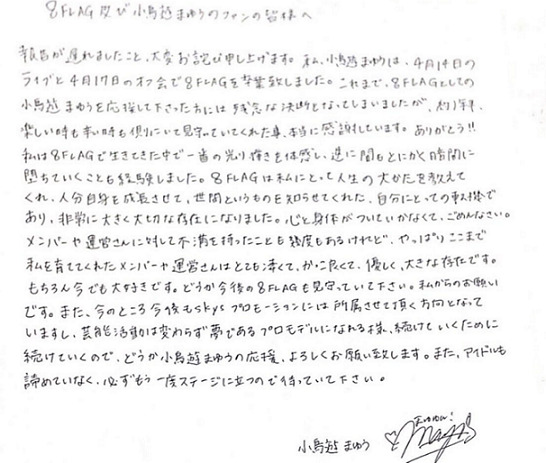 8FLAG及び小鳥遊まゆうのファンの皆様へ
報告が遅れましたこと、大変お詫び申し上げます。私、小鳥遊まゆうは、4月14日の
ライブと4月17日のオフ会で8FLAGを卒業致しました。これまで、8FLAGとしての
小鳥遊まゆうを応援して下さった方には残念な決断となってしまいましたが、約1年半、
楽しい時も辛い時も側にいて見守っていてくれた事、本当に感謝しています。ありがとう!!
私は8FLAGで生きてきた中で一番の光り輝きを体感し、逆に闇もとにかく暗闇に
堕ちていくことも経験しました。8FLAGは私にとって人生の大かたを教えて
くれ、人分自身を成長させて、世間というものを知らせてくれた、自分にとっての転機で
あり、非常に大きく大切な存在になりました。心と身体がついていかなくて、ごめんなさい。
メンバーや運営さんに対して不満を持ったことも幾度もあるけれど、やっぱりここまで
私を育ててくれたメンバーや運営さんはとても凄くて、かっこ良くて、優しく、大きな存在です。
もちろん今でも大好きです。どうか今後の8FLAGも見守っていて下さい。私からのお願い
です。また、今のところ今後もskysプロモーションには所属させて頂く方向となって
いますし、芸能活動は変わらず夢であるプロモデルになれる様、続けていくために
続けていくので、どうか小鳥遊まゆうの応援、よろしくお願い致します。また、アイドルも
諦めていなく、必ずもう一度ステージに立つので待っていて下さい。
小鳥遊 まゆう